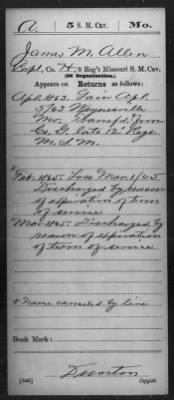 A. 5 S. M. Cav. Mo.
James M. Allen
Capt, Co. H, 5 Reg't Missouri S. M. Cav.
(2d Organization.)
Appears on Returns as follows:
Apl. 1863. Gain Apl.
3/63 Waynesville
Mo. Transf'd. from
Co. G. late 12" Regt
M. S. M.
Feb. 1865. Loss Mar. 1/65.
Discharged by reason
of expiration of term
of service
Mar 1865. Discharged by
reason of expiration
of term of service.
Name canceled by line
Book Mark:
(546) Dunton
Copyist.